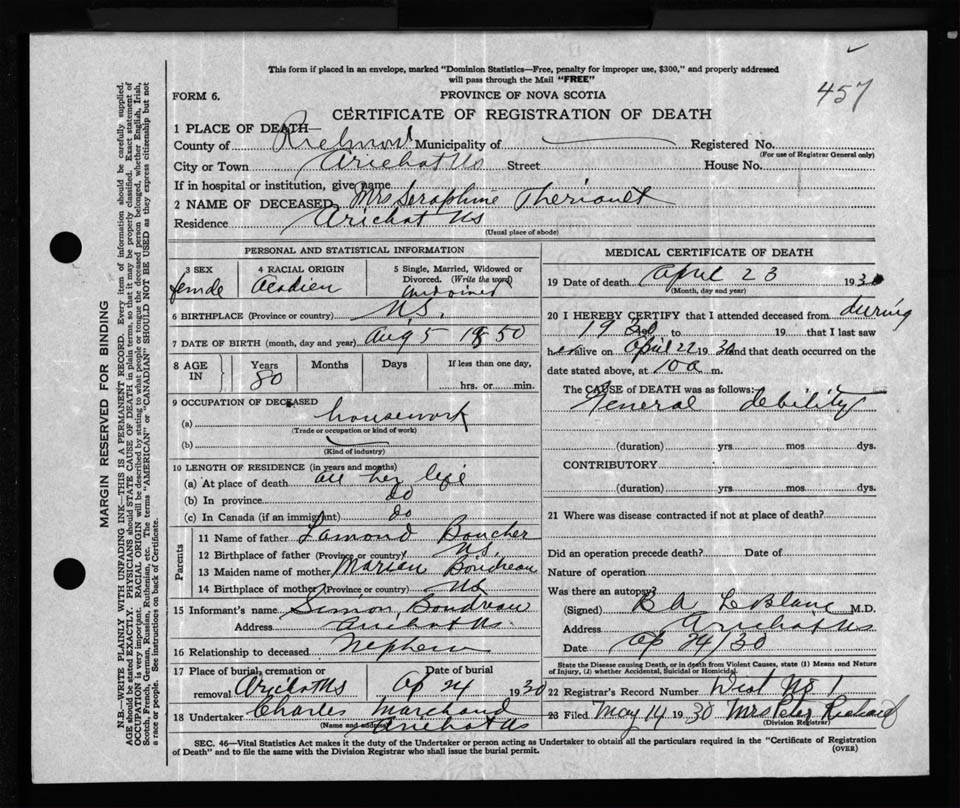 This form if placed in an envelope, marked "Dominion Statistics—Free, penalty for improper use, $300," and properly addressed
will pass through the Mail "FREE"
457
FORM 6.
PROVINCE OF NOVA SCOTIA
CERTIFICATE OF REGISTRATION OF DEATH
1 PLACE OF DEATH—
County of Richmond Municipality of Registered No.
(For use of Registrar General only)
City or Town Arichat NS Street House No.
If in hospital or institution, give name
2 NAME OF DECEASED Mrs Seraphine Theriault
Residence Arichat NS
(Usual place of abode)
PERSONAL AND STATISTICAL INFORMATION
3 SEX 4 RACIAL ORIGIN 5 Single, Married, Widowed or
Divorced. (Write the word)
female Acadien
6 BIRTHPLACE (Province or country) N.S.
7 DATE OF BIRTH (month, day and year) Aug 5 1850
8 AGE IN Years Months Days If less than one day,
80 hrs. or min.
9 OCCUPATION OF DECEASED
(a) housework
(Trade or occupation or kind of work)
(b)
(Kind of industry)
10 LENGTH OF RESIDENCE (in years and months)
(a) At place of death all her life
(b) In province do
(c) In Canada (if an immigrant) do
Parents
11 Name of father Lamond Boucher
12 Birthplace of father (Province or country) NS.
13 Maiden name of mother Boudreau
14 Birthplace of mother (Province or country) NS
15 Informant's name Simon Boudreau
Address Arichat NS.
16 Relationship to deceased Nephew
17 Place of burial, cremation or Date of burial
removal Arichat NS Ap 24 1930
18 Undertaker Charles Marchand
(Name and address) Arichat NS
MEDICAL CERTIFICATE OF DEATH
19 Date of death April 23 1930
(Month, day and year)
20 I HEREBY CERTIFY that I attended deceased from during
1930 to 19 that I last saw
her alive on April 22 1930 and that death occurred on
the date stated above, at 10 a m.
The CAUSE of DEATH was as follows:
General debility
(duration) yrs mos dys.
CONTRIBUTORY
(duration) yrs. mos dys.
21 Where was disease contracted if not at place of death?
Did an operation precede death? Date of
Nature of operation
Was there an autopsy?
(Signed) B A LeBlanc M.D.
Address Arichat NS
Date Ap 24/30
State the Disease causing Death, or in death from Violent Causes, state (1) Means and Nature
of Injury, (2) whether Accidental, Suicidal or Homicidal.
22 Registrar's Record Number No 1
23 Filed May 14 1930 Mrs Peter Richard
(Division Registrar)
SEC. 46—Vital Statistics Act makes it the duty of the Undertaker or person acting as Undertaker to obtain all the particulars required in the "Certificate of Registration
of Death" and to file the same with the Division Registrar who shall issue the burial permit.
(OVER)
MARGIN RESERVED FOR BINDING
N.B.—WRITE PLAINLY WITH UNFADING INK—THIS IS A PERMANENT RECORD. Every item of information should be carefully supplied.
AGE should be stated EXACTLY. PHYSICIANS should STATE CAUSE OF DEATH in plain terms, so that it may be properly classified. Exact statement of
OCCUPATION is very important. RACIAL ORIGIN will be described by stating to what people or tongue the deceased person belonged, whether English, Irish,
Scotch, French, German, Russian, Ruthenian, etc. The terms "AMERICAN" or "CANADIAN" SHOULD NOT BE USED as they express citizenship but not
a race or people. See instructions on back of Certificate.